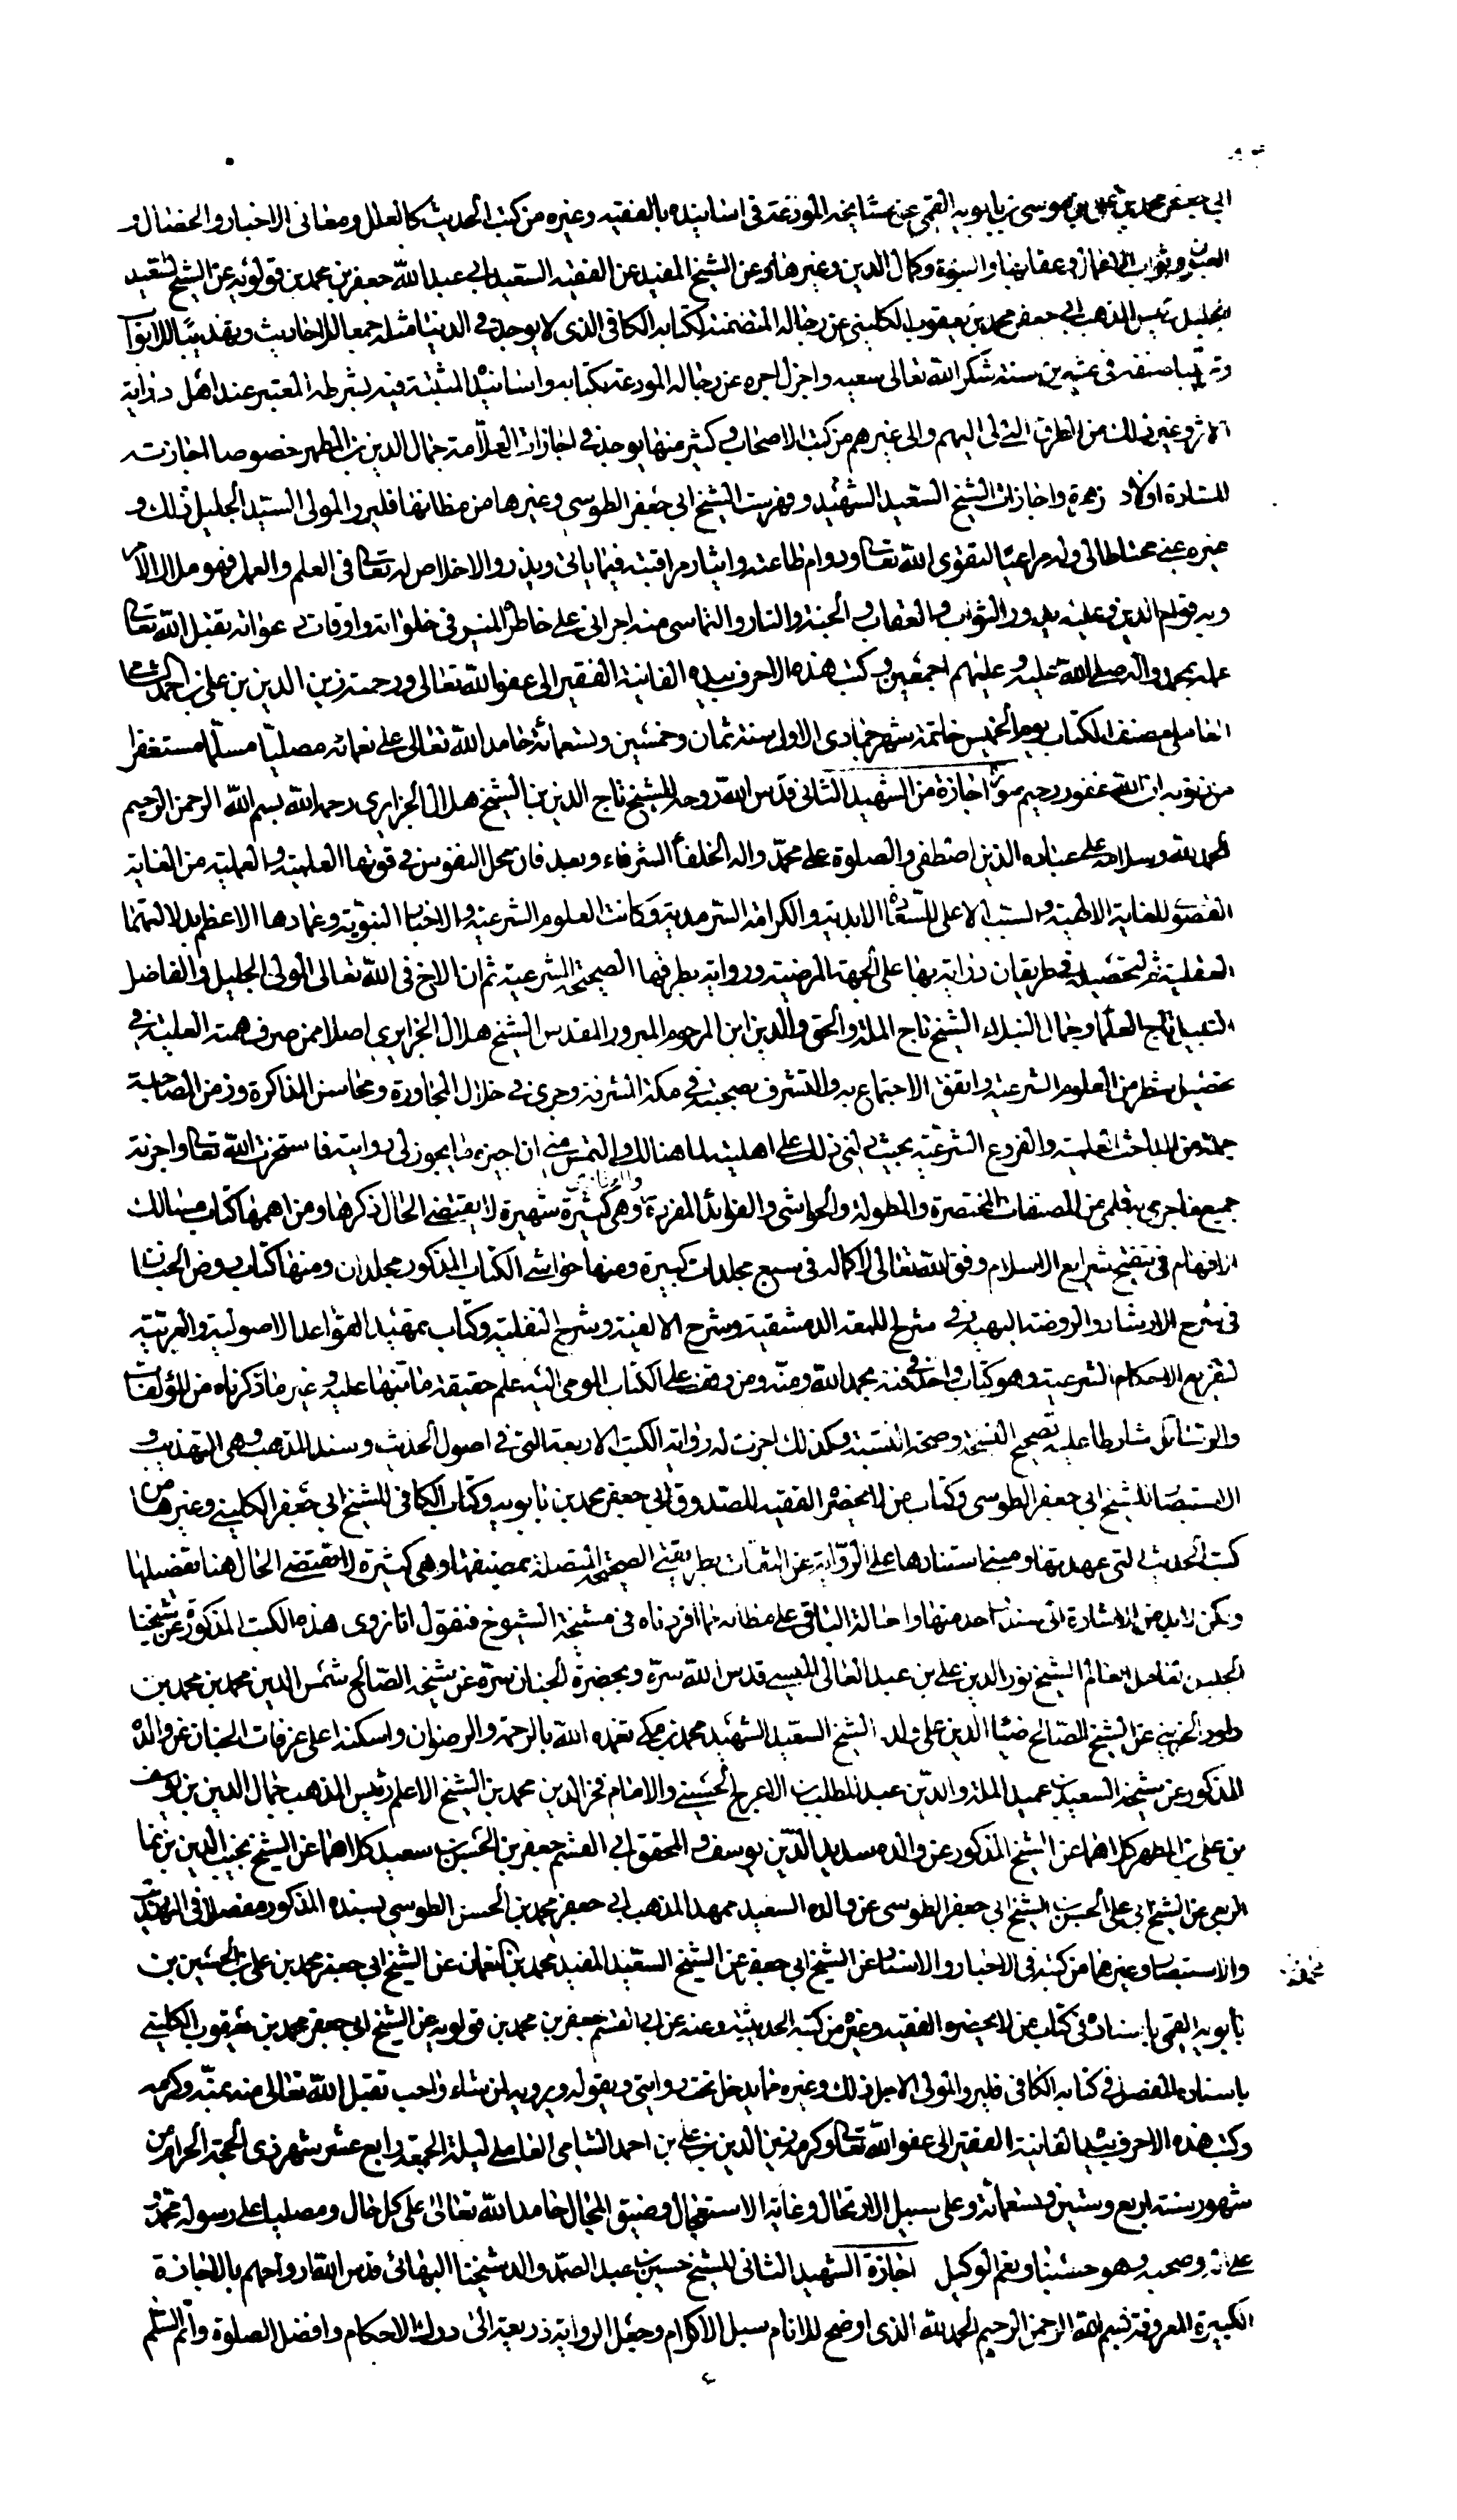 ابي جعفر محمد بن علي بن موسى بن بابويه القمي عن مشايخه المودعة في اسانيده بالفقيه وغيره من كتب الحديث كالعلل ومعاني الاخبار والخصال و
العيون وثواب الاعمال وعقابها والنبوة وكمال الدين وغيرها وعن الشيخ المفيد عن الفقيه السعيد ابي عبد الله جعفر بن محمد بن قولويه عن الشيخ السعيد
الجليل رئيس المذهب ابي جعفر محمد بن يعقوب الكليني عن رجاله المتضمنة لكتابه الكافي الذي لا يوجد في الدنيا مثله جمعا للاحاديث وتهذيبا للابواب
وترتيبا صنفه في عشرين سنة شكر الله تعالى سعيه واجزل اجره عن رجاله المودعة بكتابه واسانيده المثبتة فيه بشرطه المعتبر عند اهل دراية
الاثر وغير ذلك من الطرق التي لي اليهم والى غيرهم من كتب الاصحاب وكثير منها يوجد في اجازات العلامة جمال الدين بن المطهر خصوصا اجازته
للسادة اولاد زهرة واجازات الشيخ السعيد الشهيد وفهرست الشيخ ابي جعفر الطوسي وغيرها من مظانها فليرو المولى السيد الجليل ذلك و
غيره عني محتاطا لي وله مراعيا لتقوى الله تعالى ودوام طاعته وايثار مراقبته فيما ياتي ويذر والاخلاص له تعالى في العلم والعمل فهو ملاك الامر
وبه قوام الدين وعليه يدور الثواب والعقاب والجنة والنار والتماسي منه اجرائي على خاطره المنير في خلواته واوقات دعواته تقبل الله تعالى
عمله بمحمد واله صلى الله عليه وعليهم اجمعين وكتب هذه الاحرف بيده الفانية الفقير الى عفو الله تعالى ورحمته زين الدين بن علي بن احمد الشامي
العاملي مصنف الكتاب يوم الخميس خاتمة شهر جمادى الاولى سنة ثمان وخمسين وتسعمائة حامدا لله تعالى على نعمائه مصليا مسلما مستغفرا
من ذنوبه ان الله غفور رحيم صورة اجازة من الشهيد الثاني قدس الله روحه للشيخ تاج الدين بن الشيخ هلال الجزايري رحمه الله بسم الله الرحمن الرحيم
الحمد لله وسلام على عباده الذين اصطفى والصلوة على محمد واله الخلفاء الشرفاء وبعد فان محل النفوس في قوتها العلمية والعملية من الغاية
القصوى للغاية الالهية والسبب الاعلى للسعادة الابدية والكرامة السرمدية وكانت العلوم الشرعية والاخبار النبوية وعمادها الاعظم بدلالتها
العقلية ثم لتحصيله طريقان دراية بها على الجهة المرضية ورواية بطرقها الصحيحة الشرعية ثم ان الاخ في الله تعالى المولى الجليل والفاضل
النبيل تاج العلماء وجمال النبلاء الشيخ تاج الملة والحق والدين ابن المرحوم المبرور المقدس الشيخ هلال الجزايري اصلا ممن صرف همته العلية في
تحصيل شطر من العلوم الشرعية واتفق الاجتماع به والتشرف بصحبته في مكة المشرفة وجرى في خلال المجاورة ومحاسن المذاكرة وزمن المصاحبة
جملة من المباحث العلمية والفروع الشرعية بحيث دلني ذلك على اهليته لما هنالك والتمس مني ان اجيزه ما يجوز لي روايته فاستخرت الله تعالى واجزته
جميع ما جرى به قلمي من المصنفات المختصرة والمطولة والحواشي والفوائد المفردة والفتاوى وهي كثيرة شهيرة لا يقتضي الحال ذكرها ومن اهمها كتاب مسالك
الافهام في تنقيح شرايع الاسلام وفق الله تعالى لاكماله في سبع مجلدات كبيرة ومنها حواشي الكتاب المذكور مجلدان ومنها كتاب روض الجنان
في شرح الارشاد والروضة البهية في شرح اللمعة الدمشقية وشرح الالفية وشرح النفلية وكتاب تمهيد القواعد الاصولية والعربية
لتفريع الاحكام الشرعية وهو كتاب واحد في فنه بحمد الله ومنه ومن وقف على الكتاب المومى اليه علم حقيقة ما نبهنا عليه وغير ما ذكرناه من المؤلفات
والرسائل شارطا عليه تصحيح النسخة وصحة النسبة وكذلك اجزت له رواية الكتب الاربعة التي هي اصول الحديث وسند المذهب وهي التهذيب و
الاستبصار للشيخ ابي جعفر الطوسي وكتاب من لا يحضره الفقيه للصدوق ابي جعفر محمد بن بابويه وكتاب الكافي للشيخ ابي جعفر الكليني وغيرها من
كتب الحديث التي عهد بها ومبنى استنادها على الرواية عن الثقات بطريقتي الصحيحة المتصلة بمصنفها وهي كثيرة لا يقتضي الحال هنا تفصيلها
ولكن لابد من الاشارة الى سند واحد منها واحالة الباقي على مظانه مما افردناه في مشيخة الشيوخ فنقول انا نروي هذه الكتب المذكورة عن شيخنا
الجليل الفاضل العالم الشيخ نور الدين علي بن عبد العالي الميسي قدس الله سره وبحضرة الجنان سره عن شيخه الصالح شمس الدين محمد بن محمد بن
داود الجزيني عن الشيخ الصالح ضياء الدين علي ولد الشيخ السعيد الشهيد محمد بن مكي تغمده الله بالرحمة والرضوان واسكنه اعلى غرفات الجنان عن والده
المذكور عن شيخه السعيدين عميد الملة والدين عبد المطلب بن الاعرج الحسيني والامام فخر الدين محمد بن الشيخ الاعلم رئيس المذهب جمال الدين بن يوسف
بن علي بن المطهر كلاهما عن الشيخ المذكور عن والده سديد الدين يوسف والمحقق ابي القسم جعفر بن الحسن بن سعيد كلاهما عن الشيخ نجيب الدين بن نما
الربعي عن الشيخ ابي علي الحسن بن الشيخ ابي جعفر الطوسي عن والده السعيد ممهد المذهب ابي جعفر محمد بن الحسن الطوسي بسنده المذكور مفصلا في التهذيب
والاستبصار وغيرهما من كتبه في الاخبار والاسناد عن الشيخ ابي جعفر عن الشيخ السعيد المفيد محمد بن النعمان عن الشيخ ابي جعفر محمد بن علي بن الحسين بن
بابويه القمي باسناده في كتاب من لا يحضره الفقيه وغيره من كتبه الحديثية وعنه عن ابي القسم جعفر بن محمد بن قولويه عن الشيخ ابي جعفر محمد بن يعقوب الكليني
باسناده المفصل في كتابه الكافي فليرو المولى الاجل ذلك وغيره مما يدخل تحت روايتي ويقوله ويرويه لمن شاء واحب تقبل الله تعالى منه بمنه وكرمه
وكتب هذه الاحرف بيده الفانية الفقير الى عفو الله تعالى وكرمه زين الدين بن علي بن احمد الشامي العاملي ليلة الجمعة رابع عشر شهر ذي الحجة الحرام من
شهور سنة اربع وستين وتسعمائة وعلى سبيل الارتحال وغاية الاستعجال وضيق المجال حامدا لله تعالى على كل حال ومصليا على رسوله محمد و
على اله وصحبه وهو حسبنا ونعم الوكيل اجازة الشهيد الثاني للشيخ حسين بن عبد الصمد والد شيخنا البهائي قدس الله ارواحهم بالاجازة
الكبيرة المعروفة بسم الله الرحمن الرحيم الحمد لله الذي اوضح للانام سبل الاكرام وجعل الرواية ذريعة الى درك الاحكام وافضل الصلوة واتم السلم